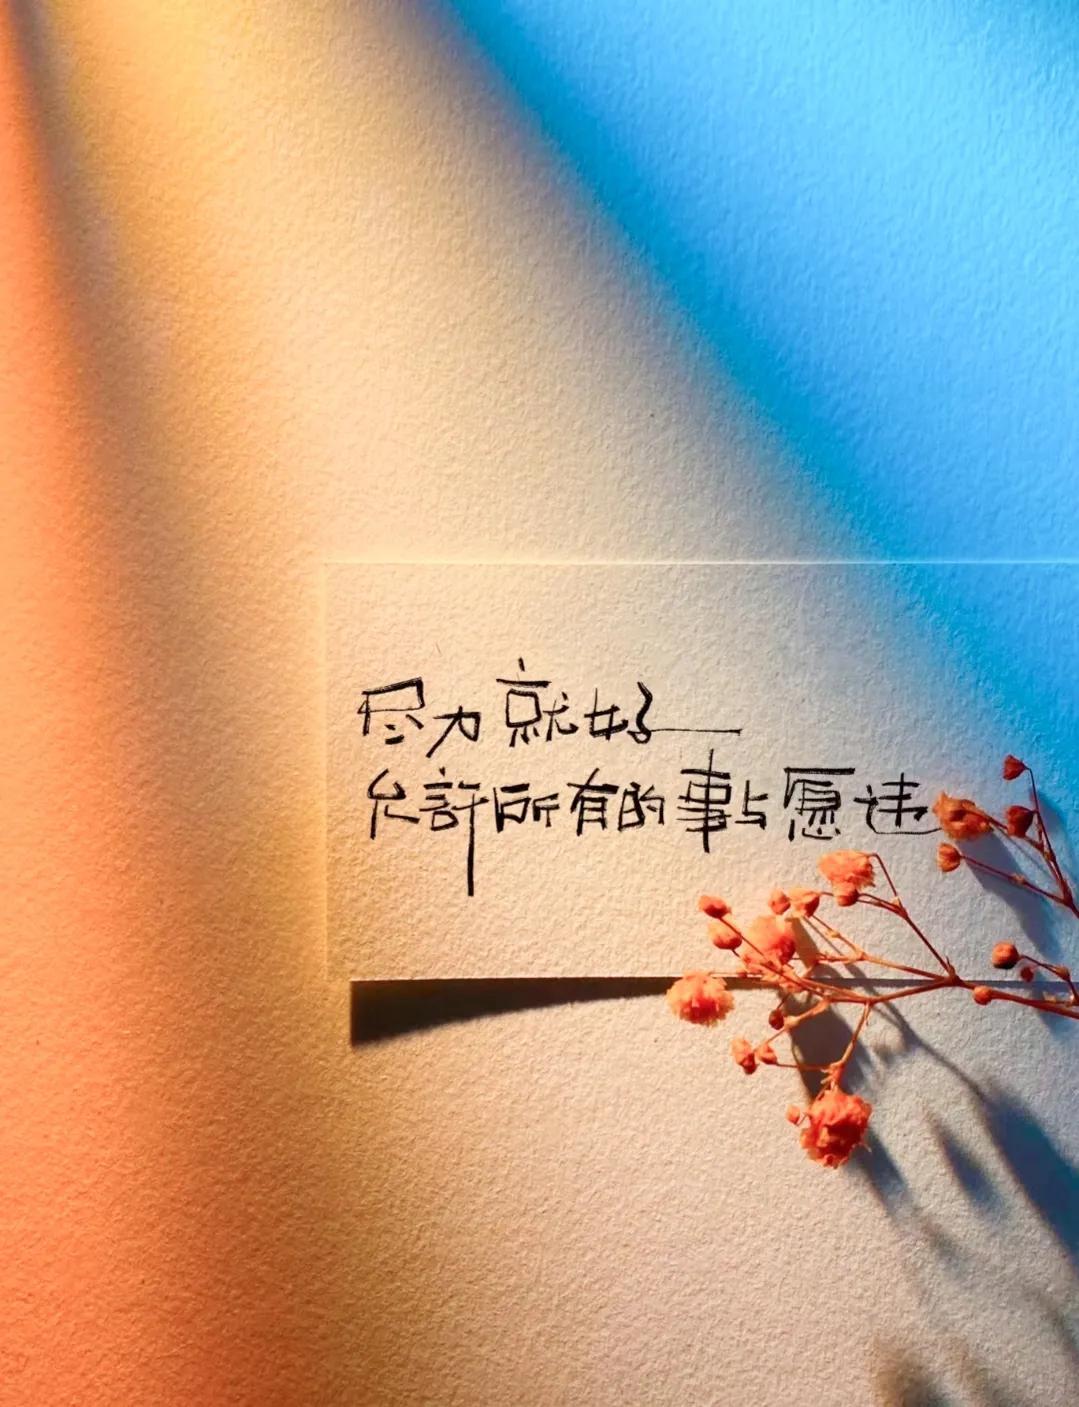 尽力就好
允許所有的事与愿违